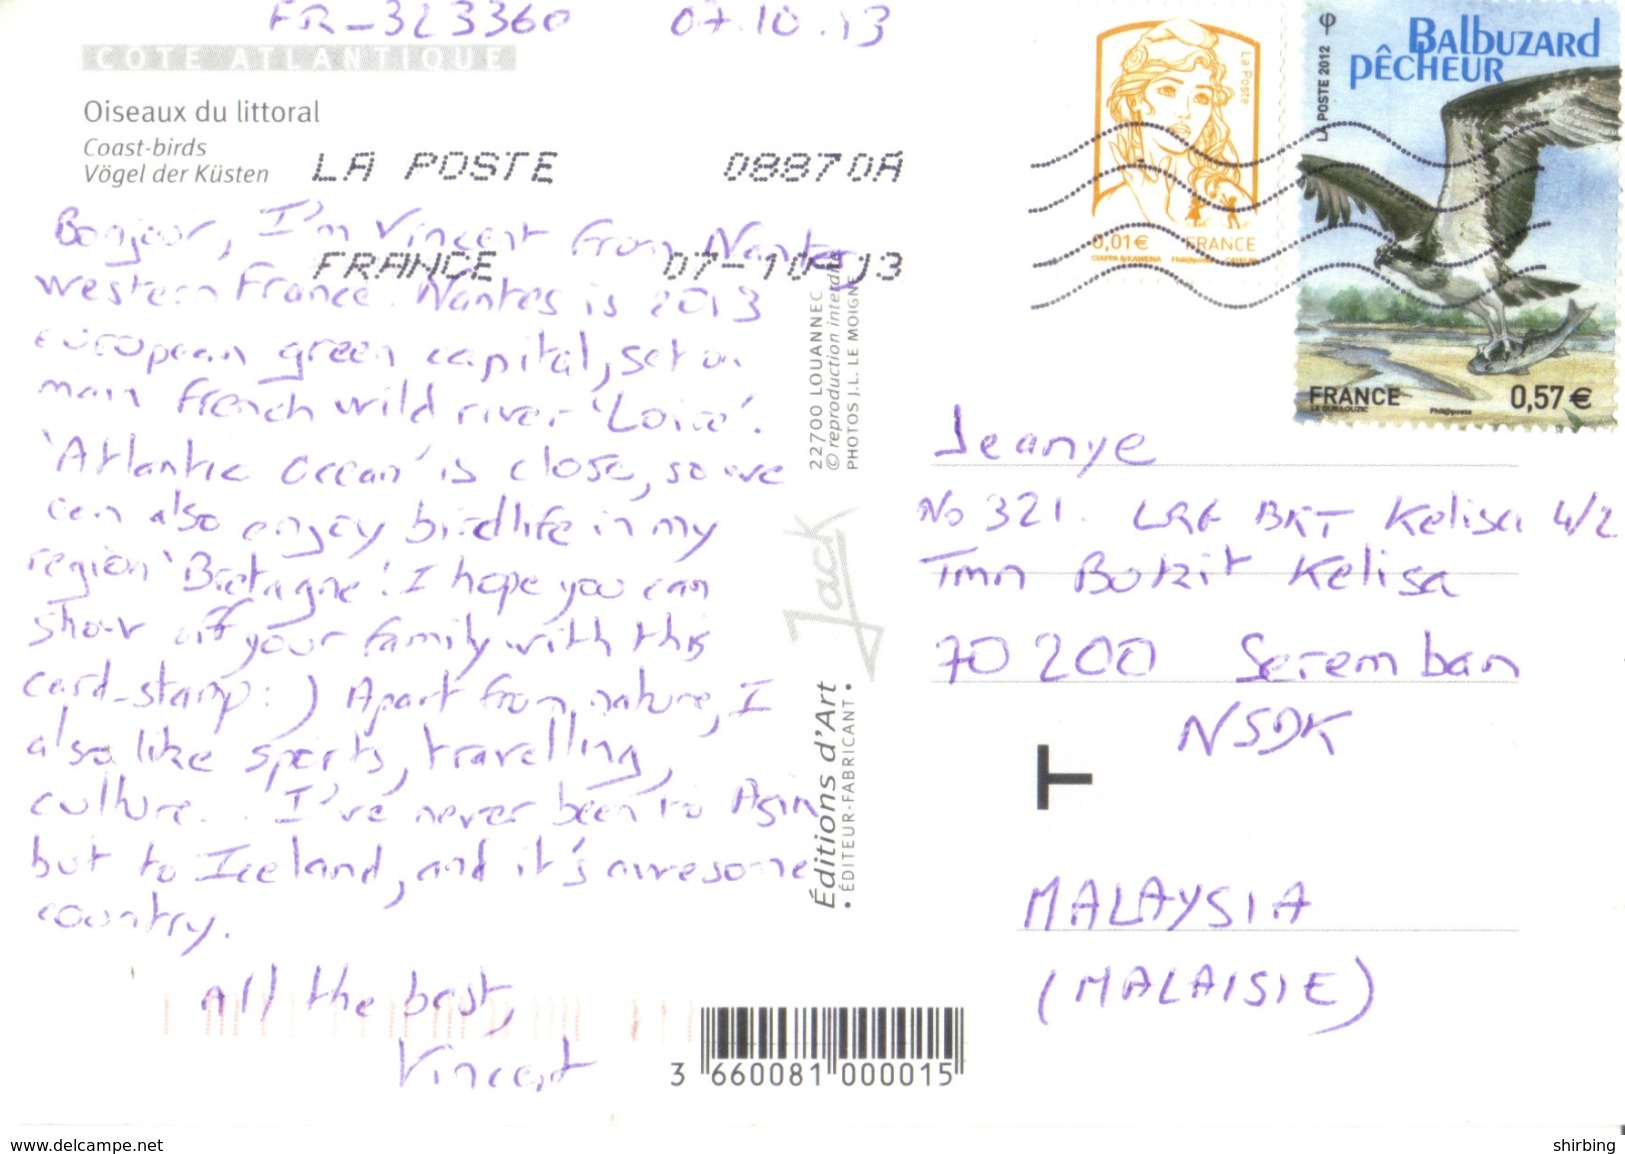 FR-323360 07.10.13
CÔTE ATLANTIQUE
Oiseaux du littoral
Coast-birds
Vögel der Küsten
LA POSTE 08870A
FRANCE 07-10-13
Bonjour, I'm Vincent from Nantes,
western France. Nantes is 2013
european green capital, set on
main French wild river 'Loire'.
'Atlantic Ocean' is close, so we
can also enjoy birdlife in my
region 'Bretagne'. I hope you can
show off your family with this
card-stamp :) Apart from nature, I
also like sports, travelling,
culture... I've never been to Asia
but to Iceland, and it's awesome
country.
All the best,
Vincent
22700 LOUANNEC
© reproduction interdite
PHOTOS J.L. LE MOIGNE
Jack
Éditions d'Art
• ÉDITEUR-FABRICANT •
3 660081 000015
La Poste
0,01€ FRANCE
CIAPPA & KAWENA Phil@poste
LA POSTE 2012
Balbuzard
PÊCHEUR
FRANCE 0,57 €
LE GUILLOUZIC Phil@poste
Jeanye
No 321. LRG BKT Kelisa 4/2
Tmn Bukit Kelisa
70200 Seremban
NSDK
T
MALAYSIA
(MALAISIE)
www.delcampe.net
shirbing